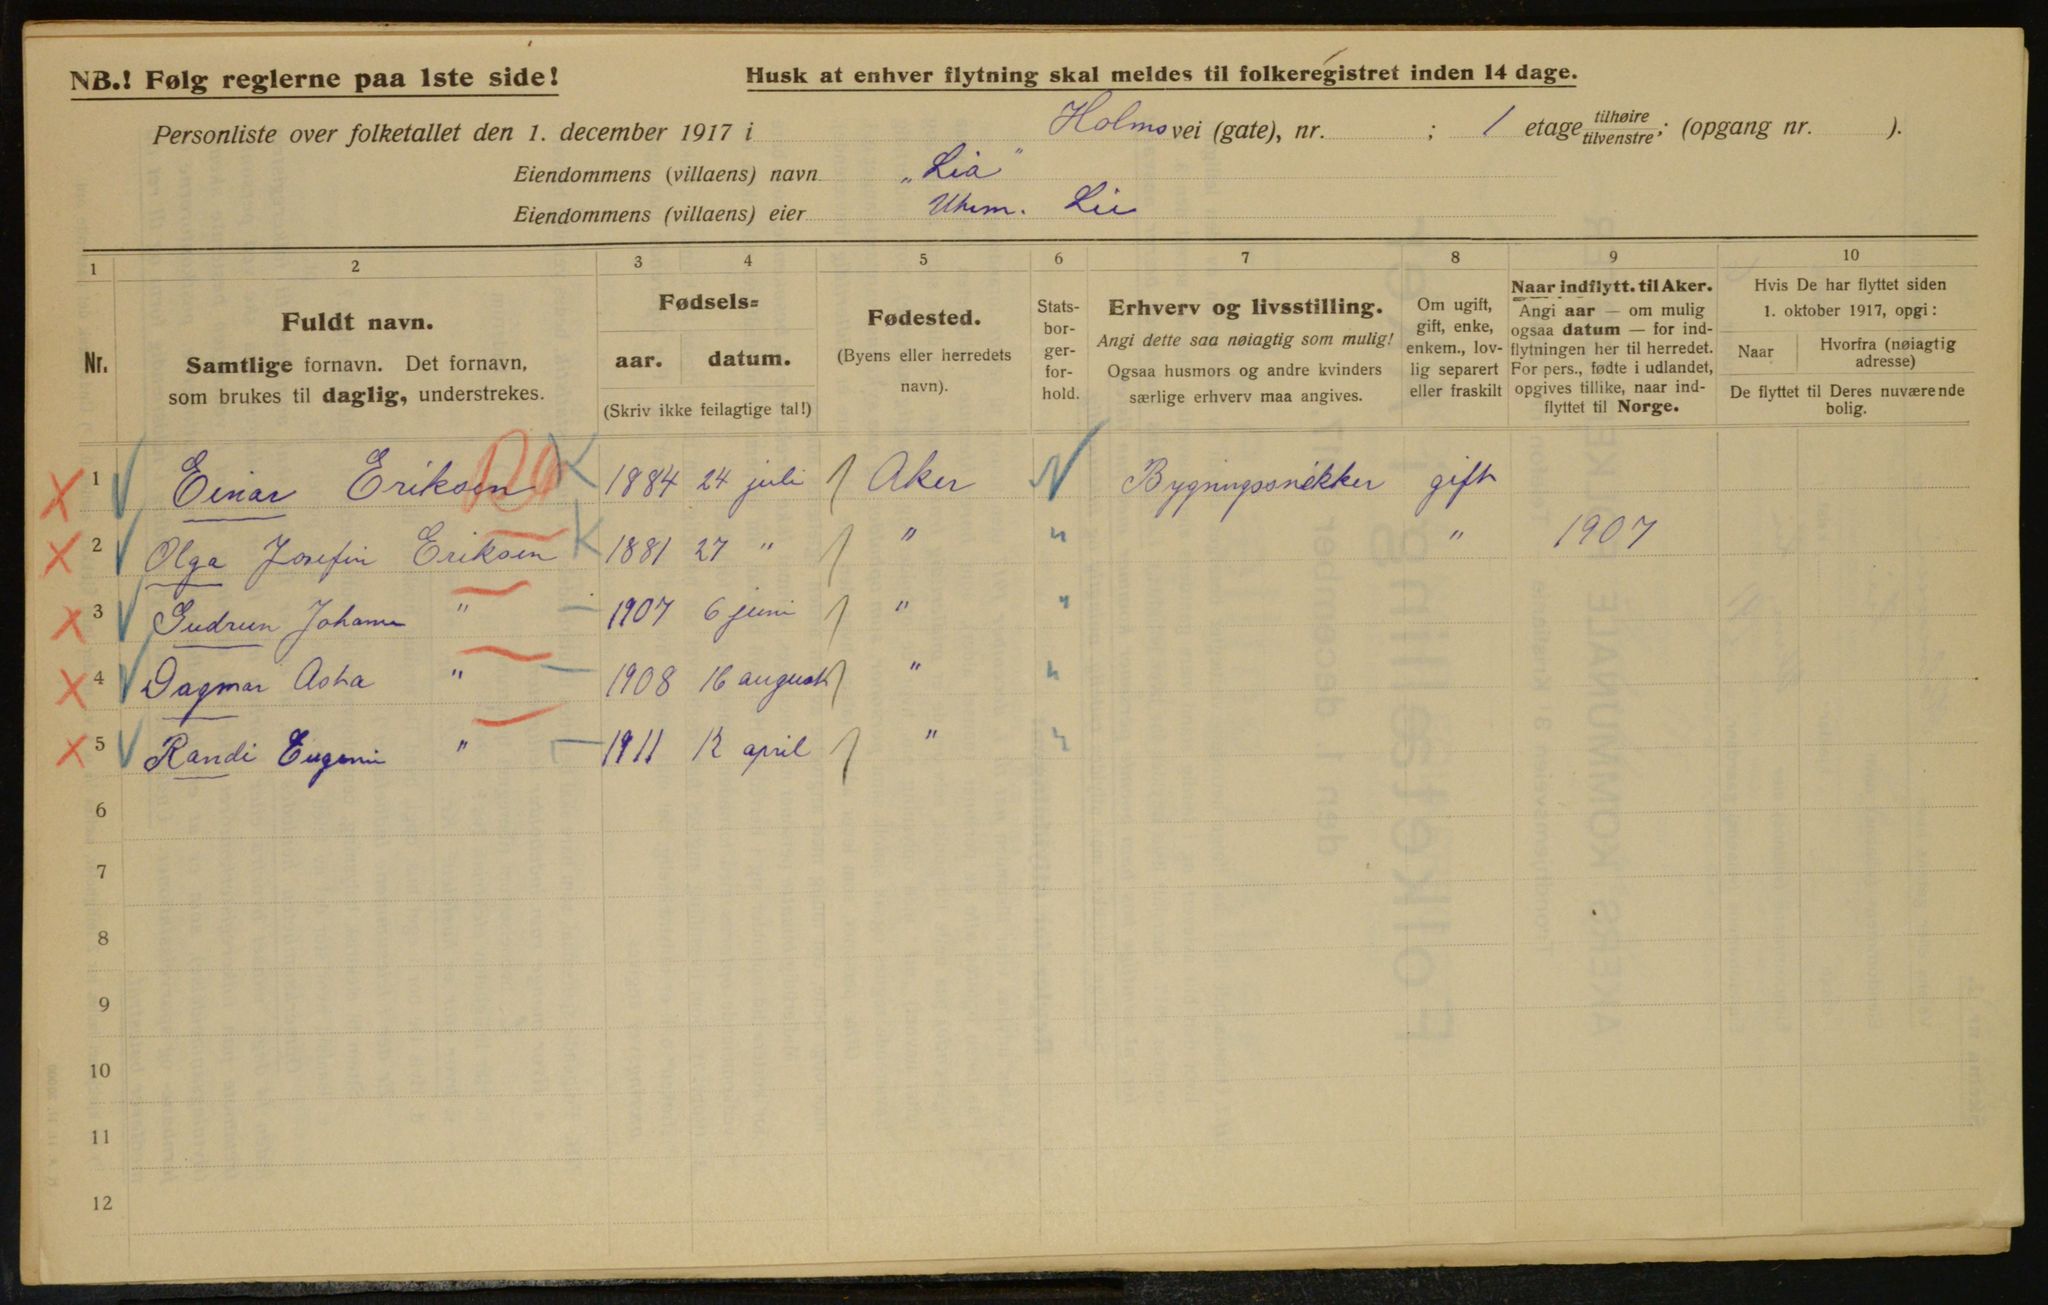 NB.! Følg reglerne paa 1ste side!
Husk at enhver flytning skal meldes til folkeregistret inden 14 dage.
Personliste over folketallet den 1. december 1917 i Holms vei (gate), nr. ; 1 etage tilhøire tilvenstre; (opgang nr. ).
Eiendommens (villaens) navn „Lia"
Eiendommens (villaens) eier Lie
1 2 3 4 5 6 7 8 9 10
Nr.
Fuldt navn.
Samtlige fornavn. Det fornavn,
som brukes til daglig, understrekes.
Fødsels=
aar. datum.
(Skriv ikke feilagtige tal!)
Fødested.
(Byens eller herredets
navn).
Stats-
bor-
ger-
for-
hold.
Erhverv og livsstilling.
Angi dette saa nøiagtig som mulig!
Ogsaa husmors og andre kvinders
særlige erhverv maa angives.
Om ugift,
gift, enke,
enkem., lov-
lig separert
eller fraskilt
Naar indflytt. til Aker.
Angi aar — om mulig
ogsaa datum — for ind-
flytningen her til herredet.
For pers., fødte i udlandet,
opgives tillike, naar ind-
flyttet til Norge.
Hvis De har flyttet siden
1. oktober 1917, opgi:
Naar
Hvorfra (nøiagtig
adresse)
De flyttet til Deres nuværende
bolig.
1 Einar Eriksen K 1884 24 juli Aker N Bygningssnekker gift
2 Olga Josefin Eriksen K 1881 27 " " " " 1907
3 Gudrun Johanne " — 1907 6 juni " "
4 Dagmar Asta " — 1908 16 august " "
5 Randi Eugenie " — 1911 12 april " "
6
7
8
9
10
11
12